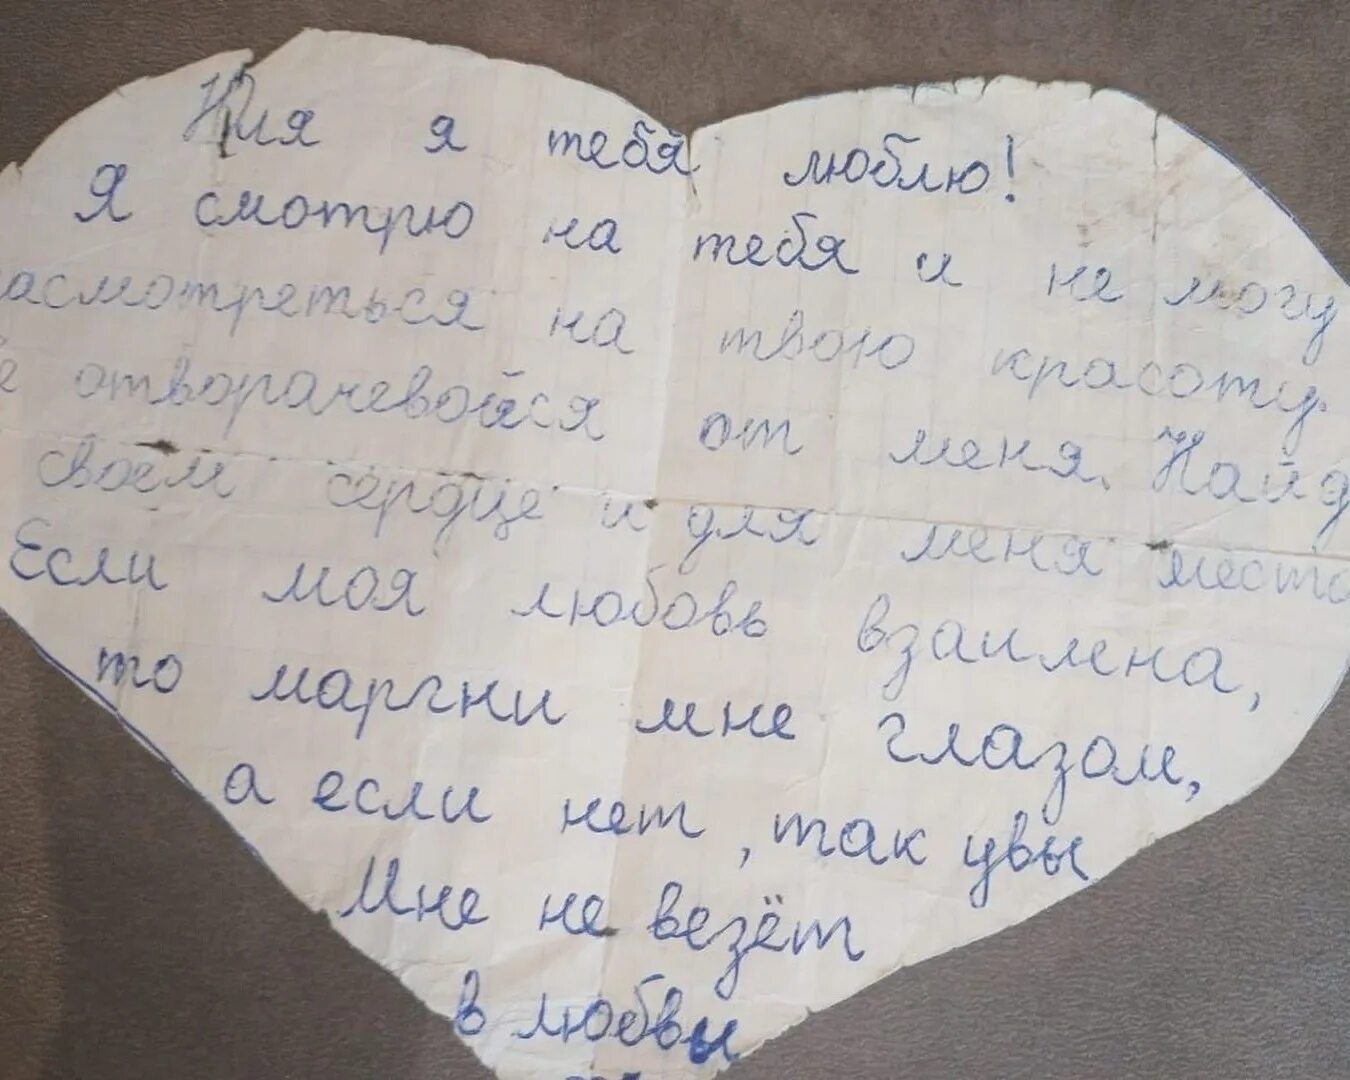 Юля я тебя люблю!
Я смотрю на тебя и не могу
асмотреться на твою красоту.
е отворачевойся от меня. Найд
своём сердце и для меня место
Если моя любовь взаимена,
то маргни мне глазом,
а если нет, так увы
Мне не везёт
в любвы